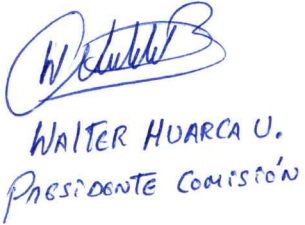 WALTER HUARCA U.
PRESIDENTE COMISIÓN